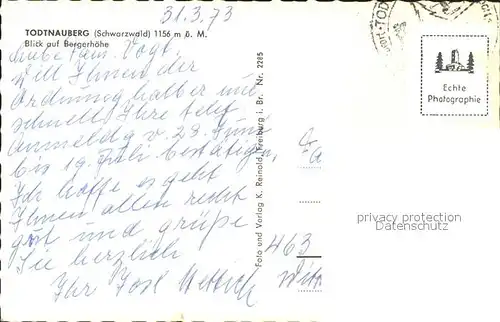 31.3.73
TODTNAUBERG (Schwarzwald) 1156 m ü. M.
Blick auf Bergerhöhe
Liebe Fam. Vogt.
will Ihnen der
Ordnung halber und
schnell Ihre telef
Anmeldg v 23. Juni
bis 14. Juli bestätigen,
Ich hoffe es geht
Ihnen allen recht
gut und grüße
Sie herzlich
Ihr Jos
Foto und Verlag K. Reinold, Freiburg i. Br. Nr. 2285
TOD
Echte
Photographie
privacy protection
Datenschutz
463